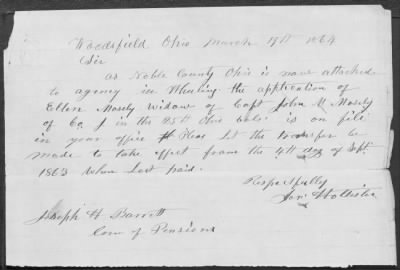 Woodsfield Ohio March 19th 1864
Sir
as Noble County Ohio is now attached
to agency in Wheeling the application of
Ellen Mosely widow of Capt John M Mosely
of Co. J in the 25th Ohio vols. is on file
in your office Pleas Let the transfer be
made to take effect from the 4th day of Sept.
1863 when Last paid.
Respectfully
Hollister
Joseph H Barrett
Com of Pensions